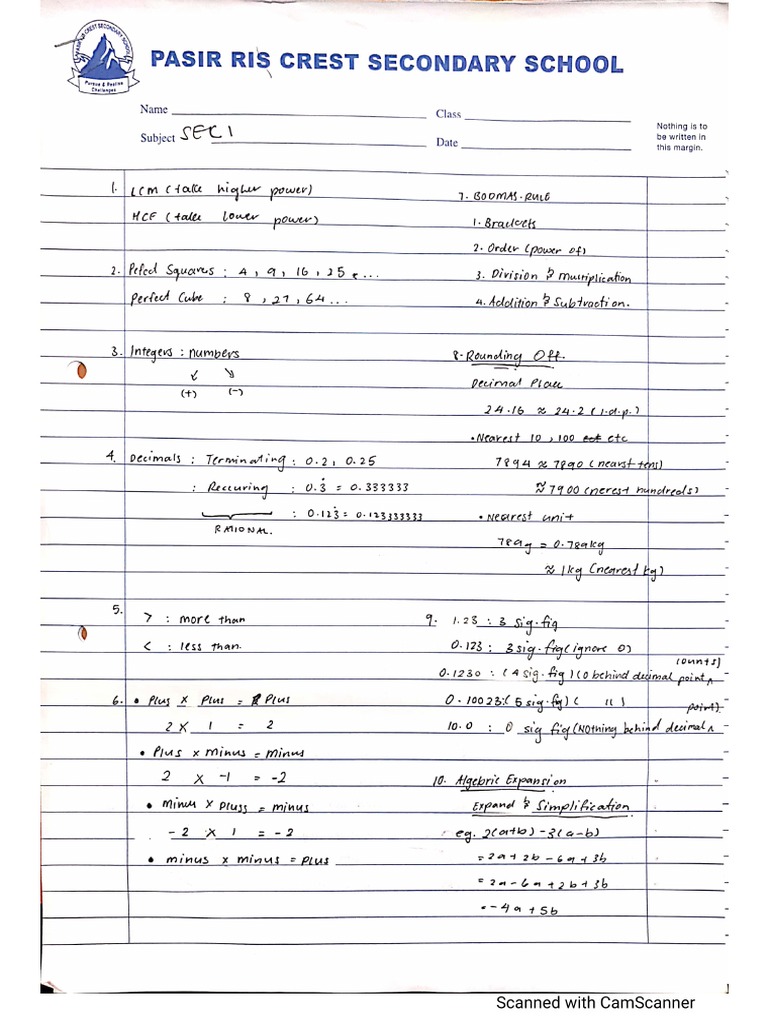 PASIR RIS CREST SECONDARY SCHOOL
Pursue & Realise
Challenges
PASIR RIS CREST SECONDARY SCHOOL
Name
Class
Subject SEC 1
Date
Nothing is to
be written in
this margin.
1. LCM (take higher power)
HCF (take lower power)
2. Pefect Squares : 4, 9, 16, 25, ...
Perfect Cube : 8, 27, 64...
3. Integers : numbers
↙ ↘
(+) (-)
4. Decimals : Terminating : 0.2, 0.25
: Reccuring : 0.3̇ = 0.333333
: 0.123̇ = 0.123333333
RATIONAL.
5.
> : more than
< : less than.
6. • Plus × Plus = Plus
2 × 1 = 2
• Plus × minus = minus
2 × -1 = -2
• minus × pluss = minus
-2 × 1 = -2
• minus × minus = plus
7. BODMAS-RULE
1. Brackets
2. Order (power of)
3. Division & multiplication
4. Addition & Subtraction.
8. Rounding Off.
Decimal Place
24.16 ≈ 24.2 (1.d.p.)
• Nearest 10, 100 etc
7894 ≈ 7890 (nearst tens)
≈ 7900 (nerest hundreds)
• Nearest unit
789g = 0.789kg
≈ 1kg (nearest kg)
9. 1.23 : 3 sig.fig
0.123 : 3 sig.fig (ignore 0)
counts)
0.1230 : (4 sig.fig) (0 behind decimal point ^
0.10023: (5 sig.fig) ( 11 )
point)
10.0 : 0 sig fig (NOthing behind decimal ^
10. Algebric Expansion
Expand & Simplification
eg. 2(a+b) - 3(a-b)
= 2a + 2b - 6a + 3b
= 2a - 6a + 2b + 3b
= -4a + 5b
Scanned with CamScanner